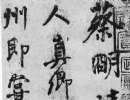 蔡明
人真卿
州即嘗